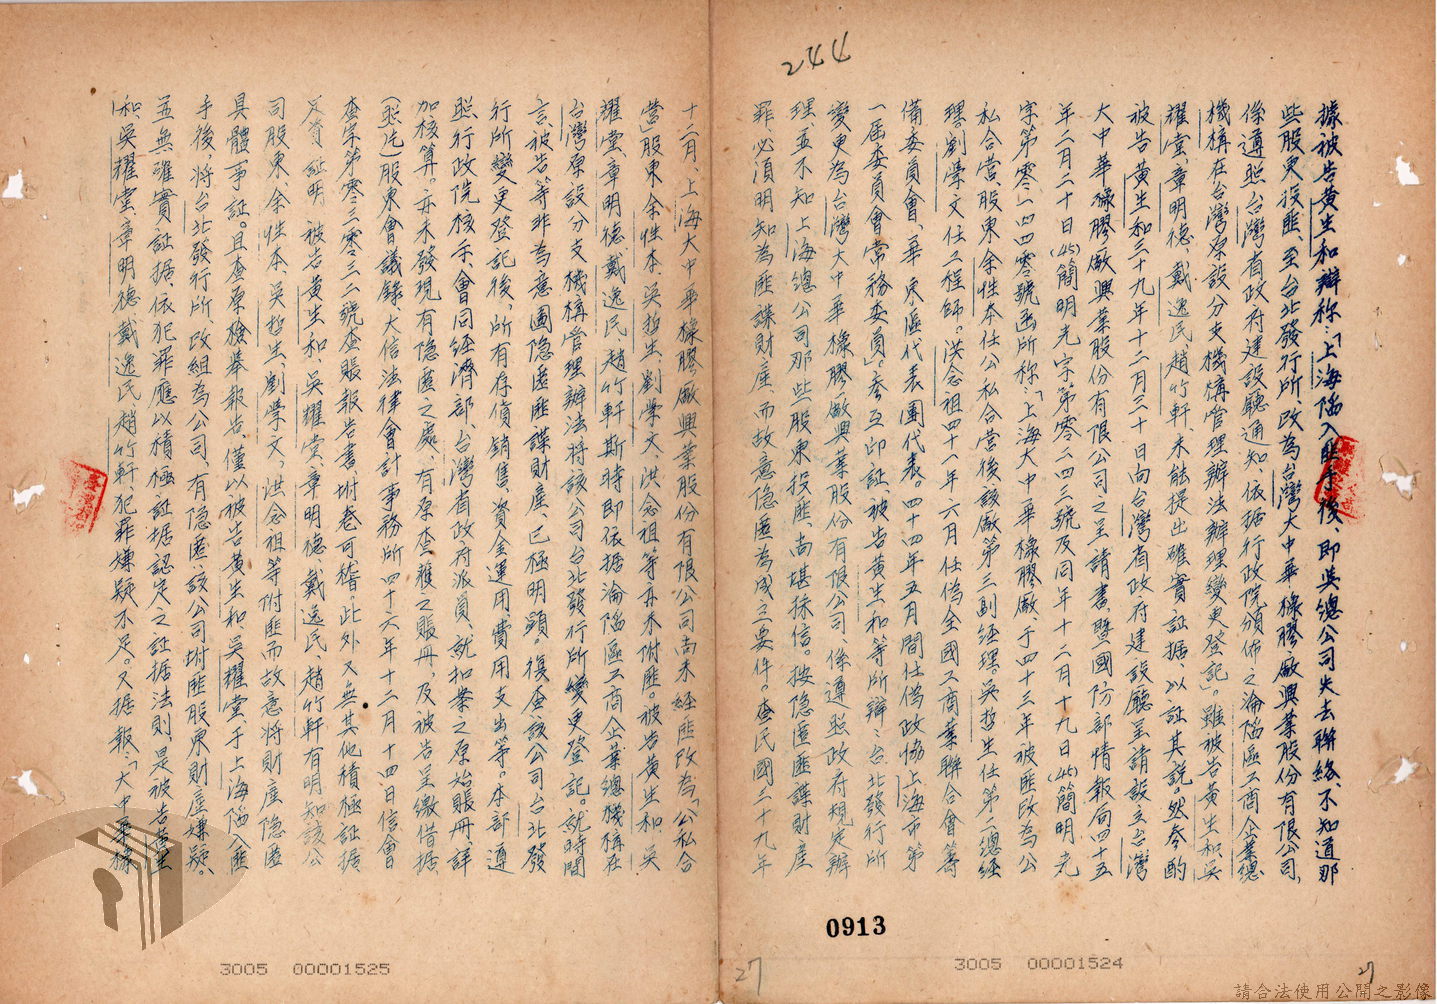 244
據被告黃生和辯称:「上海陷入匪手後、即與總公司失去聯絡、不知道那
些股東投匪、至台北發行所、改為台灣大中華橡膠廠興業股份有限公司、
係遵照台灣省政府建設廳通知、依据行政院頒佈之淪陷區工商企業總
機構在台灣原設分支機構管理辦法辦理變更登記」。雖被告黃生和吳
耀堂、章明德、戴逸民趙竹軒、未能提出確實証据、以証其說。然參酌
被告黃生和三十九年十二月三十日向台灣省政府建設廳呈請設立台灣
大中華橡膠廠興業股份有限公司之呈請書、暨國防部情報局四十五
年二月二十日(45)簡明光字第零二四三號及同年十二月十九日(45)簡明光
字第零一四四零號函所称:「上海大中華橡膠廠、于四十三年被匪改為公
私合營、股東余性本任公私合營後該廠第三副經理。吳哲生任第二總經
理。劉學文任工程師。洪念祖四十一年六月任偽全國工商業聯合會籌
備委員會、華東區代表團代表。四十四年五月間任偽政協上海市第
一屆委員會常務委員」。參互印証、被告黃生和等所辯:台北發行所
變更為台灣大中華橡膠廠興業股份有限公司、係遵照政府規定辦
理、並不知上海總公司那些股東投匪、尚堪採信。按隐匿匪諜財產
罪、必須明知為匪諜財產、而故意隐匿為成立要件。查民國三十九年
0913
3005 00001524
27
十二月、上海大中華橡膠廠興業股份有限公司尚未經匪改為「公私合
營」股東余性本、吳哲生、劉學文、洪念祖等亦未附匪。被告黃生和、吳
耀堂、章明德戴逸民、趙竹軒斯時即依据淪陷區工商企業總機構在
台灣原設分支機構管理辦法將該公司台北發行所變更登記。就時間
言、被告等非為意圖隐匿匪諜財產、已極明顯、復查該公司台北發
行所變更登記後、所有存貨銷售、資金運用、費用支出等。本部遵
照行政院核示、會同經濟部、台灣省政府派員、就扣案之原始賬冊、詳
加核算。亦未發現有隐匿之處、有原查獲之賬冊、及被告呈繳借据、
(照片)股東會議錄、大信法律會計事務所四十六年十二月十四日信會
查字第零三三零三二號查賬報告書、坿卷可稽。此外又無其他積極証据
足資証明、被告黃生和、吳耀堂、章明德、戴逸民、趙竹軒有明知該公
司股東、余性本、吳哲生、劉學文、洪念祖等附匪、而故意將財產隐匿
具體事証。且查原檢舉報告、僅以被告黃生和、吳耀堂、于上海陷入匪
手後、將台北發行所、改組為公司、有隐匿該公司坿匪股東財產嫌疑。
並無確實証据、依犯罪應以積極証据認定之証据法則、是被告黃生
和、吳耀堂、章明德戴逸民趙竹軒、犯罪嫌疑不足。又据報:「大中華橡
3005 00001525
27
請合法使用公開之影像